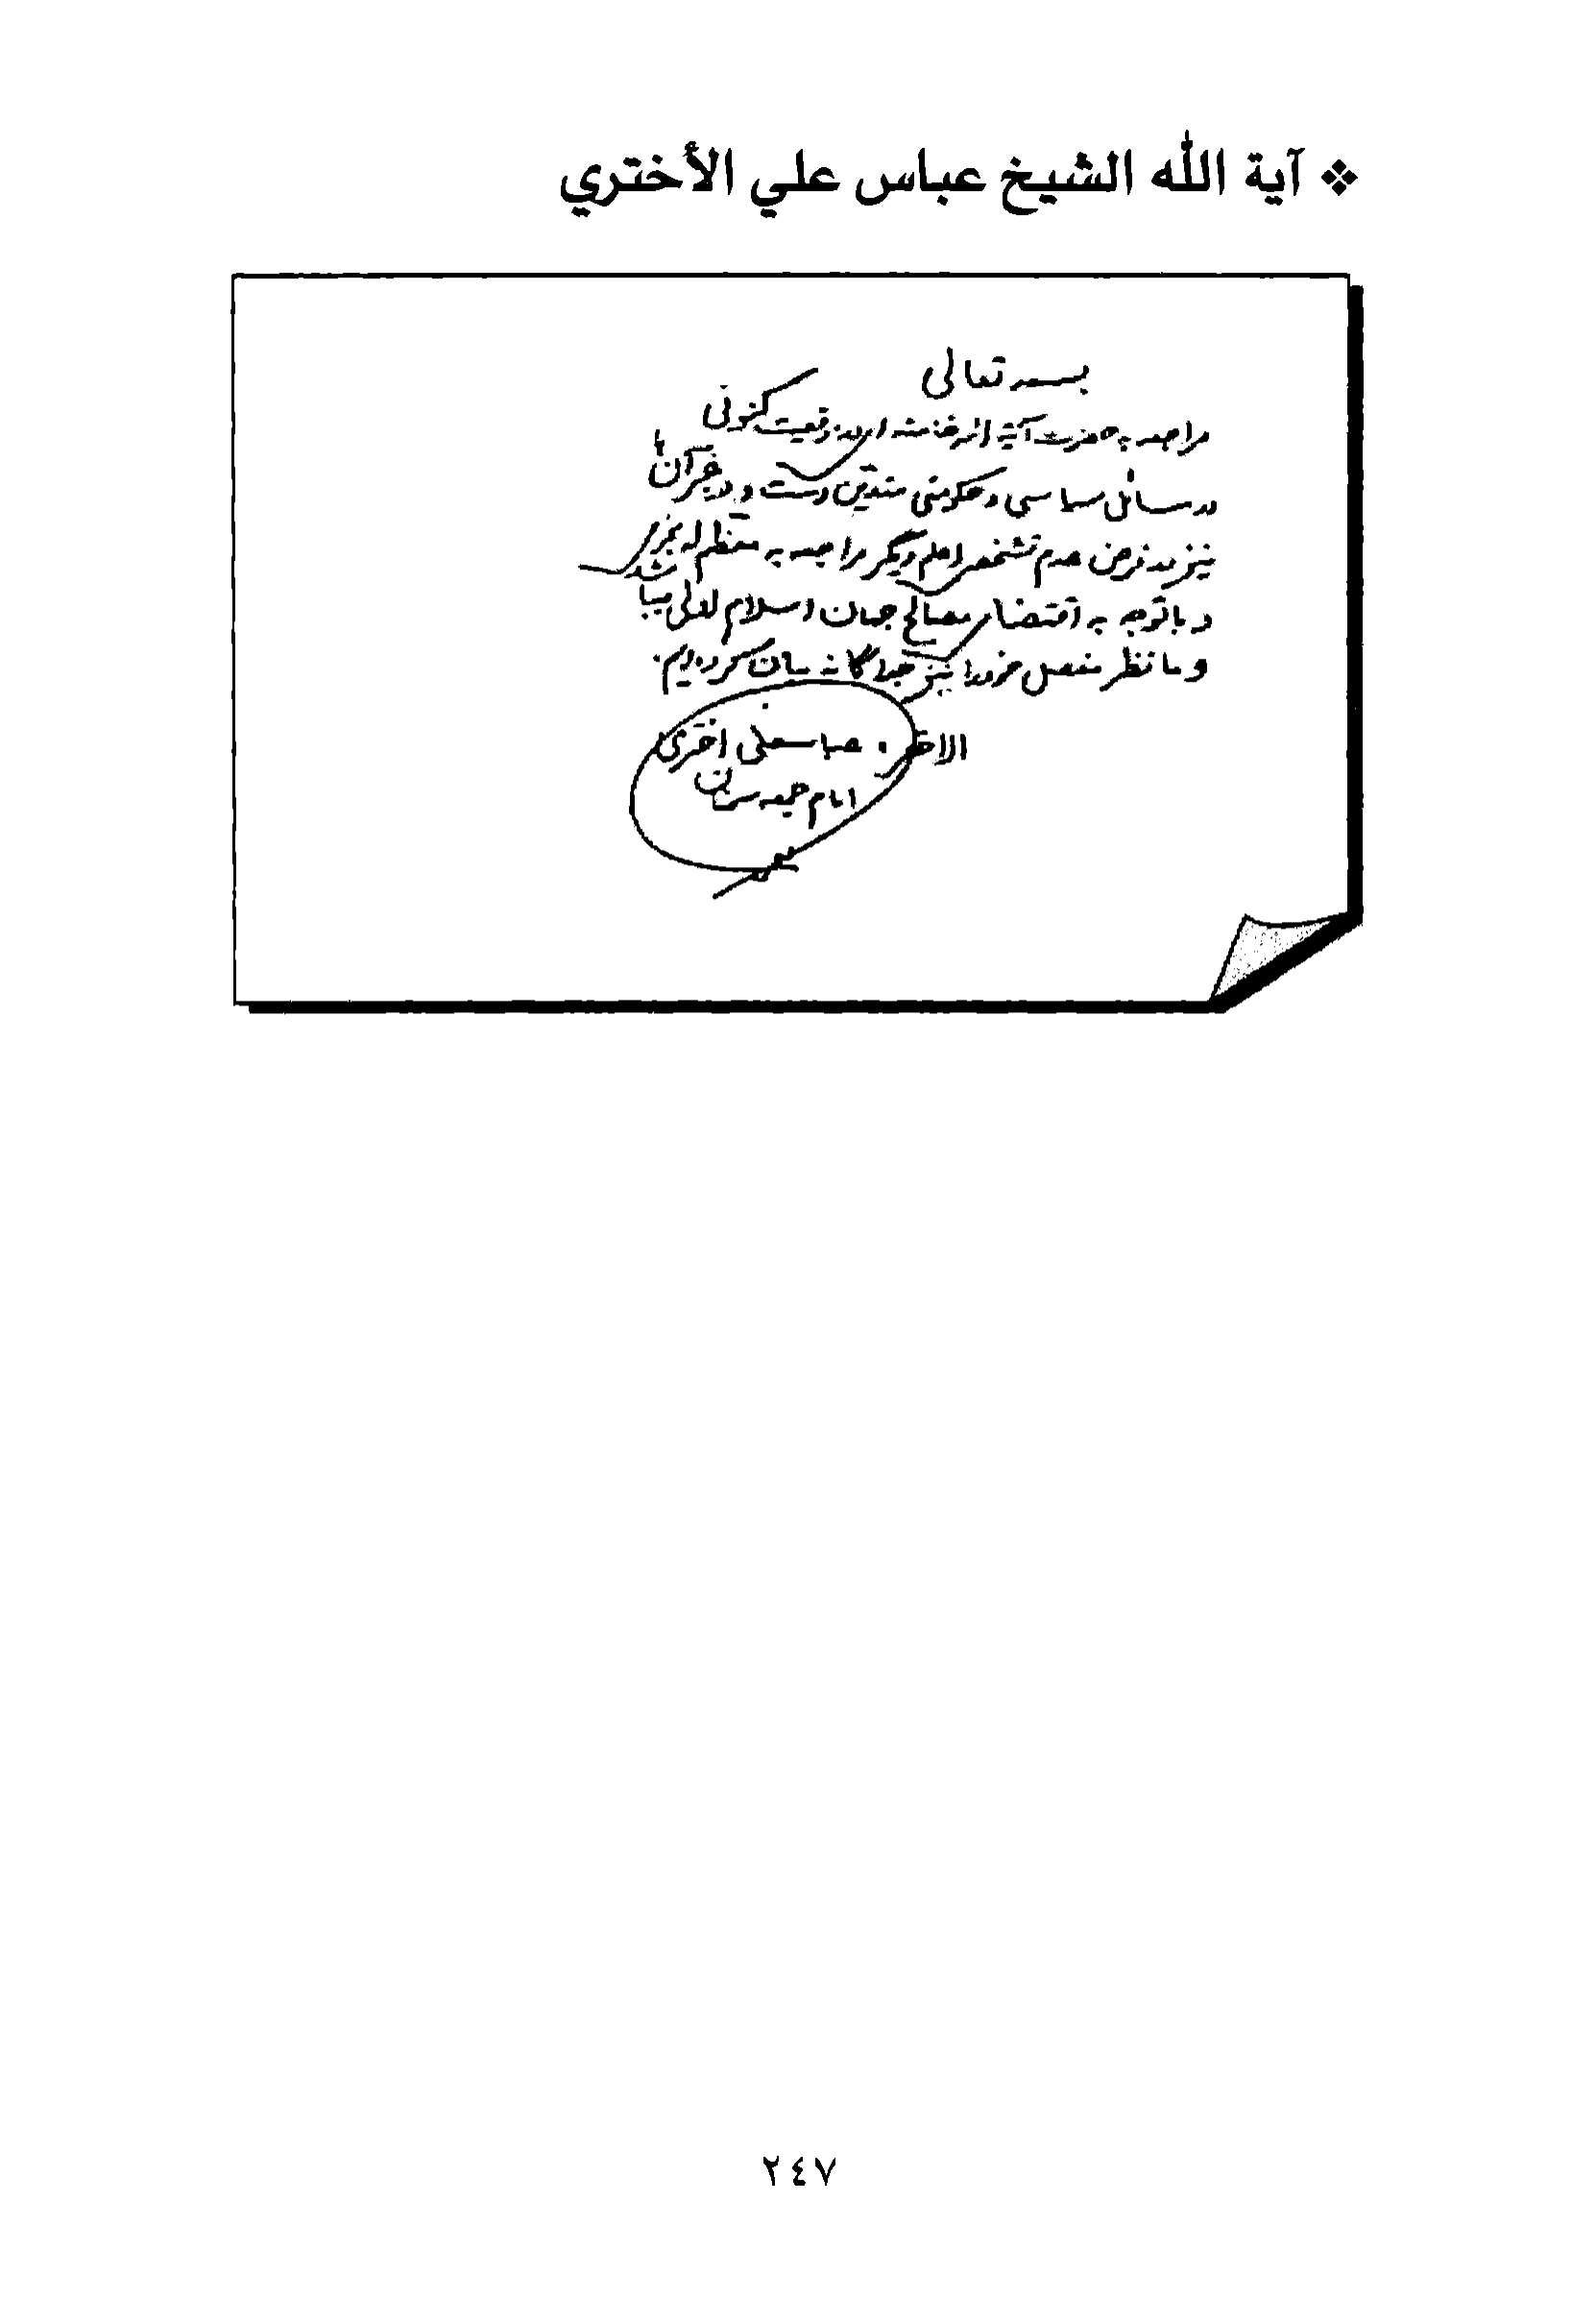 ❖ آية الله الشيخ عباس علي الأختري
بسمه تعالی
مراجعه به حضرت آیة الله خامنه ای در موقعیت کنونی
در مسائل سیاسی و حکومتی متعین است و در غیر آنها
نیز در فرض عدم تشخص اعلم دیگر مراجعه به معظم له مجزی
و با توجه به اقتضاء مصالح جهان اسلام اولی میباشد
و ما نظر مفصل خود را نیز جداگانه بیان کرده ایم.
الاحقر عباسعلی اختری
امام جمعه سمنان
٢٤٧